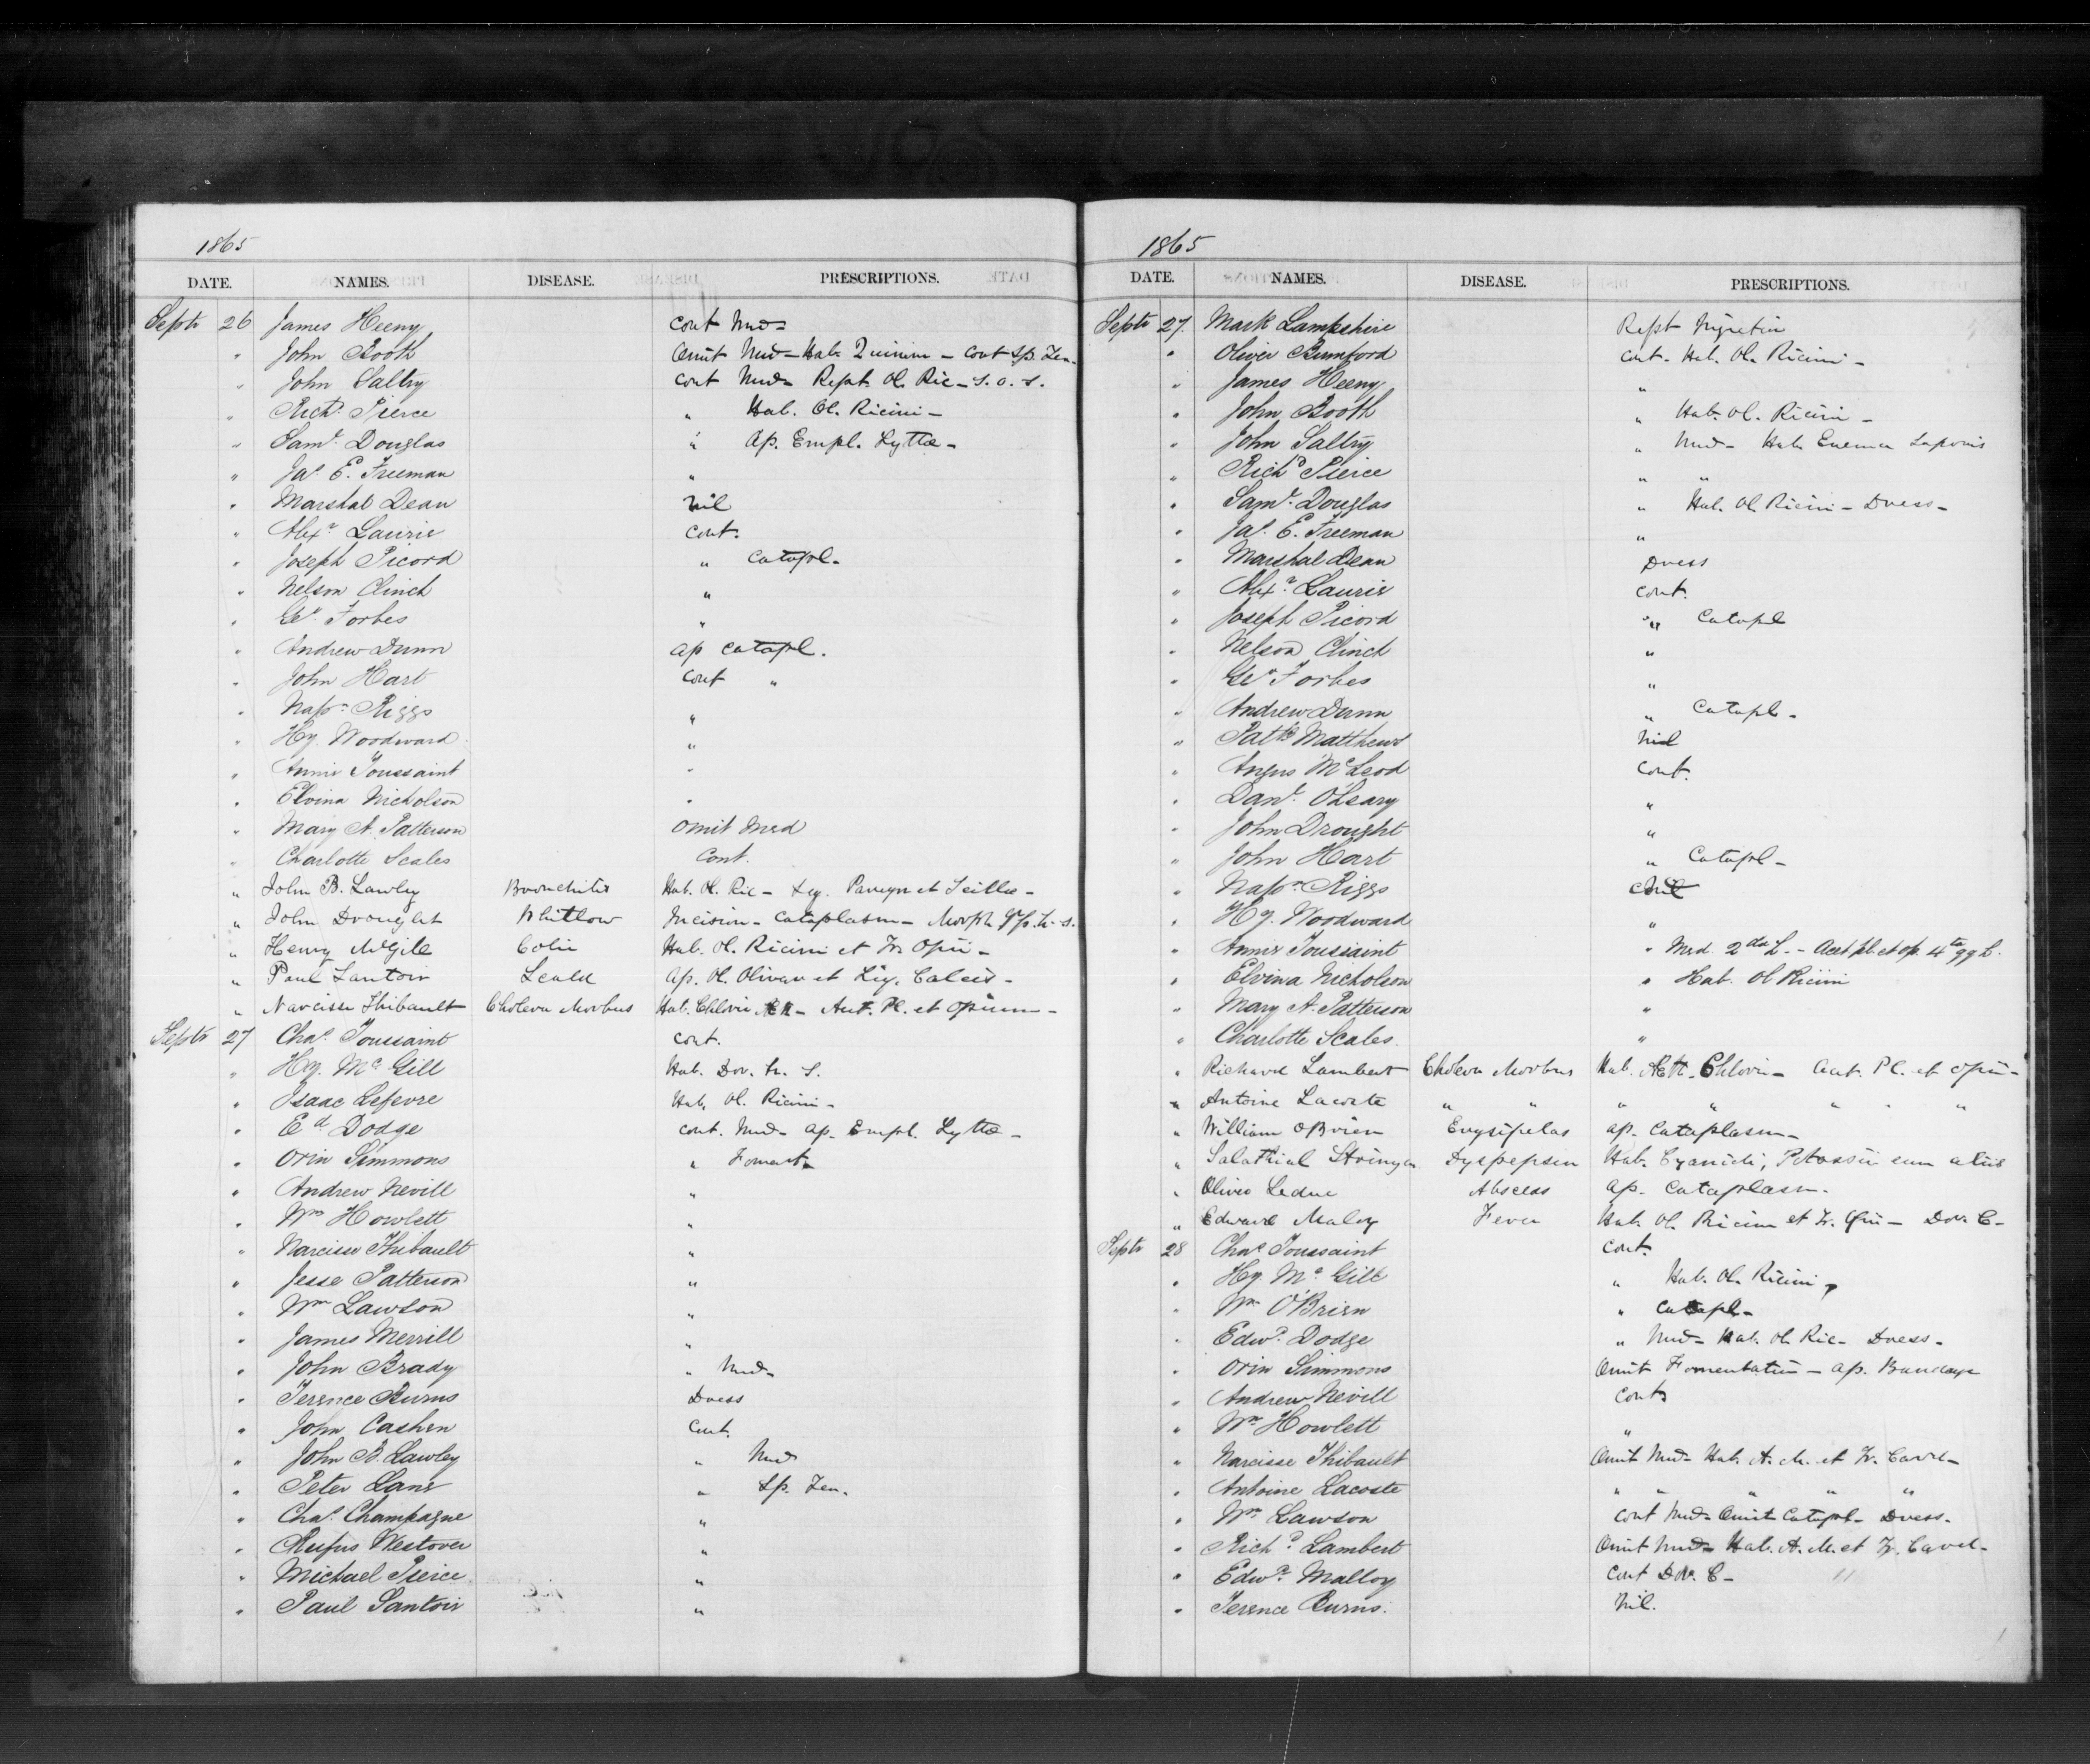 1865
DATE. NAMES. DISEASE. PRESCRIPTIONS.
Septr 26 James Heeny Cont Med-
" John Booth Omit Med - Hab. Quinine - Cont Sp. Zen.
" John Saltry Cont Med- Rept. Ol. Ric - S.O.S.
" Richd. Pierce " Hab. Ol. Ricini -
" Saml. Douglas " Ap. Empl. Lyttæ -
" Jas. E. Freeman "
" Marshal Dean Nil
" Alexr. Laurie Cont.
" Joseph Picord " Catapl.
" Nelson Clinch "
" Geo. Forbes "
" Andrew Dunn Ap Catapl.
" John Hart Cont "
" Napn. Riggs "
" Hy. Woodward "
" Annie Toussaint "
" Elvina Nicholson "
" Mary A. Patterson Omit Med
" Charlotte Scales Cont.
" John B. Lawley Bronchitis Hab. Ol. Ric - et Scillæ -
" John Drought Whitlow Incision - Cataplasm - Morph h.s.
" Henry McGill Colic Hab. Ol. Ricini et Tr. Opii -
" Paul Santoir Scald Ap. Ol. Olivæ et Liq. Calcis -
" Narcisse Thibault Cholera Morbus Hab. Chloric - Acet. Pl. et Opium -
Septr 27 Chas. Toussaint Cont.
" Hy. Mc Gill Hab. Dov. h. S.
" Isaac Lefevre Hab. Ol. Ricini -
" Ed Dodge Cont. Med - Ap. Empl. Lyttæ -
" Orin Simmons " Foment-
" Andrew Nevill "
" Wm Howlett "
" Narcisse Thibault "
" Jesse Patterson "
" Wm Lawson "
" James Merrill "
" John Brady " Med-
" Terence Burns Dress
" John Cashen Cont.
" John B. Lawley " Med
" Peter Lane " Sp. Zen.
" Chas. Champagne "
" Rufus Westover "
" Michael Pierce "
" Paul Santoir "
1865
DATE. NAMES. DISEASE. PRESCRIPTIONS.
Septr 27. Mark Lampshire Rept
" Oliver Bumford Cont. Hab. Ol. Ricini -
" James Heeny "
" John Booth " Hab. Ol. Ricini -
" John Saltry " Med - Hab Enema Saponis
" Richd Pierce " "
" Saml. Douglas " Hab. Ol. Ricini - Dress -
" Jas. E. Freeman "
" Marshal Dean Dress
" Alexr. Laurie Cont.
" Joseph Picord " Catapl
" Nelson Clinch "
" Geo. Forbes "
" Andrew Dunn " Catapl -
" Patk Matthews Nil
" Angus McLeod Cont.
" Danl. O'Leary "
" John Drought "
" John Hart " Catapl -
" Napn. Riggs
" Hy. Woodward "
" Annie Toussaint " Med. 2da h. - Acet pl. et op. 4ta qq h.
" Elvina Nicholson " Hab. Ol Ricini
" Mary A. Patterson "
" Charlotte Scales. "
" Richard Lambert Cholera Morbus Hab. Æth. Chloric - Acet. Pl. et Opii -
" Antoine Lacoste " " " " " " "
" William O'Brien Erysipelas Ap. Cataplasm -
" Salathial Stringer Dyspepsia Hab. Cyanidi, Potassii cum aliis
" Oliver Leduc Abscess Ap. Cataplasm.
" Edward Maloy Fever Hab. Ol. Ricini et Tr. Opii - Dov. C -
Septr 28 Chas. Toussaint Cont.
" Hy. Mc. Gill " Hab. Ol. Ricini
" Wm O'Brien " Catapl -
" Edwd. Dodge " Med - Hab. Ol. Ric - Dress -
" Orin Simmons Omit Fomentation - Ap. Bandage
" Andrew Nevill Cont
" Wm. Howlett "
" Narcisse Thibault Omit Med - Hab. A. M. et Tr. Card -
" Antoine Lacoste " " " " "
" Wm. Lawson Cont Med - Omit Catapl - Dress -
" Richd. Lambert Omit Med - Hab. A. M. et Tr. Card -
" Edwd. Malloy Cont Dov. C -
" Terence Burns. Nil.